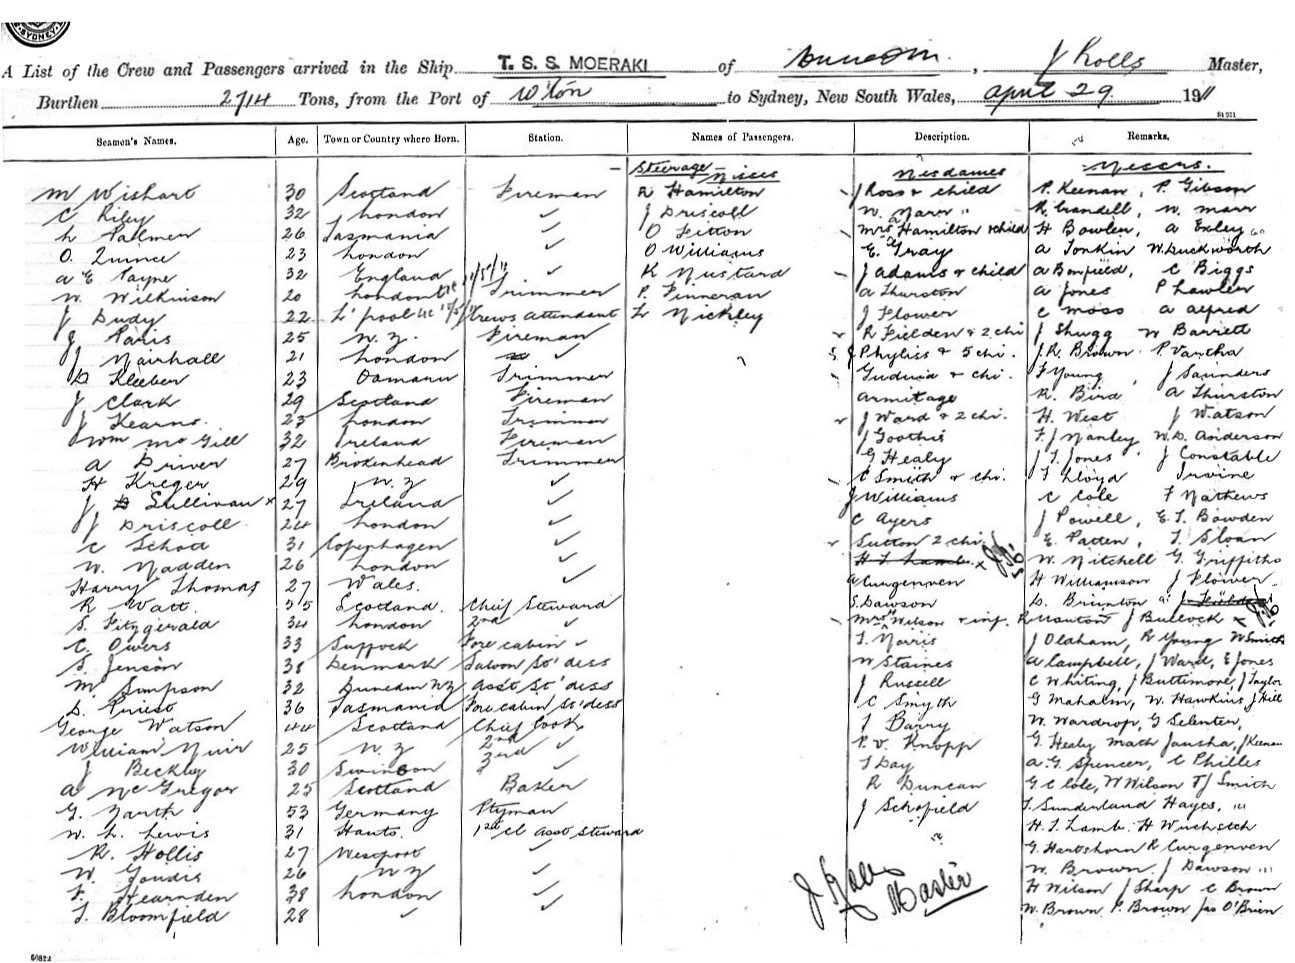 SYDNEY
A List of the Crew and Passengers arrived in the Ship T. S. S. MOERAKI of Dunedin, J Rolls Master,
Burthen 2714 Tons, from the Port of W'ton to Sydney, New South Wales, April 29 1911
Seamen's Names. Age. Town or Country where Born. Station. Names of Passengers. Description. Remarks.
Steerage - Misses Mesdames Messrs.
M Wishart 30 Scotland Fireman R Hamilton J Ross & child P. Keenan, P. Gibson
C Riley 32 London ✓ J Driscoll W. Marr " R Crandell, W. Marr
L Palmer 26 Tasmania ✓ O Fitton Mrs A Hamilton & child H Bowden, A Exley
O. Quince 23 London ✓ O Williams E. Gray A Tonkin W. Duckworth
A E Payne 32 England ✓ K Mustard J Adams & child A Bonfield, C Biggs
W. Wilkinson 20 London Trimmer P. Finneran A Thurston A Jones P Lawler
J Dudy 22 L'pool Crews Attendant L Nickley J Flower C Moss A Alfred
J Paris 25 N. Z. Fireman R Fielden & 2 chi J Shugg W Barrett
J Mairhall 21 London ✓ J Phyliss & 5 chi. J. R. Brown P. Vartha
D Kleeber 23 Oamaru Trimmer & chi. F Young, J Saunders
J Clark 29 Scotland Fireman Armitage R. Bird A Thurston
J Kearns 23 London Trimmer J Ward & 2 chi. H. West J Watson
Wm McGill 32 Ireland Fireman J Goothis F. J Manley W. D. Anderson
A Driver 27 Birkenhead Trimmer G Healy J. T. Jones J Constable
H Kreger 29 N. Z ✓ C Smith & chi. T Lloyd Irvine
J O Sullivan x 27 Ireland ✓ J Williams C Cole F Mathews
J Driscoll 24 London ✓ C Ayers J Powell, E. T. Bowden
C Schott 31 Copenhagen ✓ Sutton 2 chi E. Patten, T. Sloan
W. Madden 26 London ✓ H T Lamb x W. Mitchell G. Griffiths
Harry Thomas 27 Wales. ✓ A Curgenven H Williamson J Flower
R Watt 35 Scotland. Chief Steward S. Dawson D. Brinton J. Fielden
S. Fitzgerald 34 London 2nd ✓ Mrs Wilson & inf. J Bullock x
C. Owers 33 Suffock Fore cabin ✓ T. Norris J Oldham, R Young W Smith
S. Jenson 38 Denmark Saloon St'dess W Staines A Campbell, J Ward, E Jones
M Simpson 32 Dunedin NZ Asst St'dess J Russell C Whiting, J Buttimore, J Taylor
D. Priest 36 Tasmania Fore cabin St'dess C Smyth G Mahalm, W. Hawkins J Hill
George Watson 44 Scotland Chief Cook T Barry W. Wardrop, G Selenter,
William Muir 25 N. Z 2nd ✓ P. V. Knopp G. Healy Math Jansha, J Keenan
J Beckley 30 Swindon 3rd ✓ T Day A. G. Spencer, C Phillis
A McGregor 25 Scotland Baker R Duncan G C Cole, W Wilson T J Smith
G. Zarth 53 Germany Ptyman J Schofield T. Sunderland Hayes,
W. L. Lewis 31 Hants. 1st Cl Asst Steward H. T. Lamb. H
R. Hollis 27 Westport ✓ G. Hartshorn R Curgenven
W. Goudis 26 N Z ✓ W. Brown J Dawson
F. Hearnden 38 London ✓ H Wilson J Sharp C Brown
T. Bloomfield 28 ✓ ✓ W. Brown P. Brown Jas O'Brien
J Rolls
Master